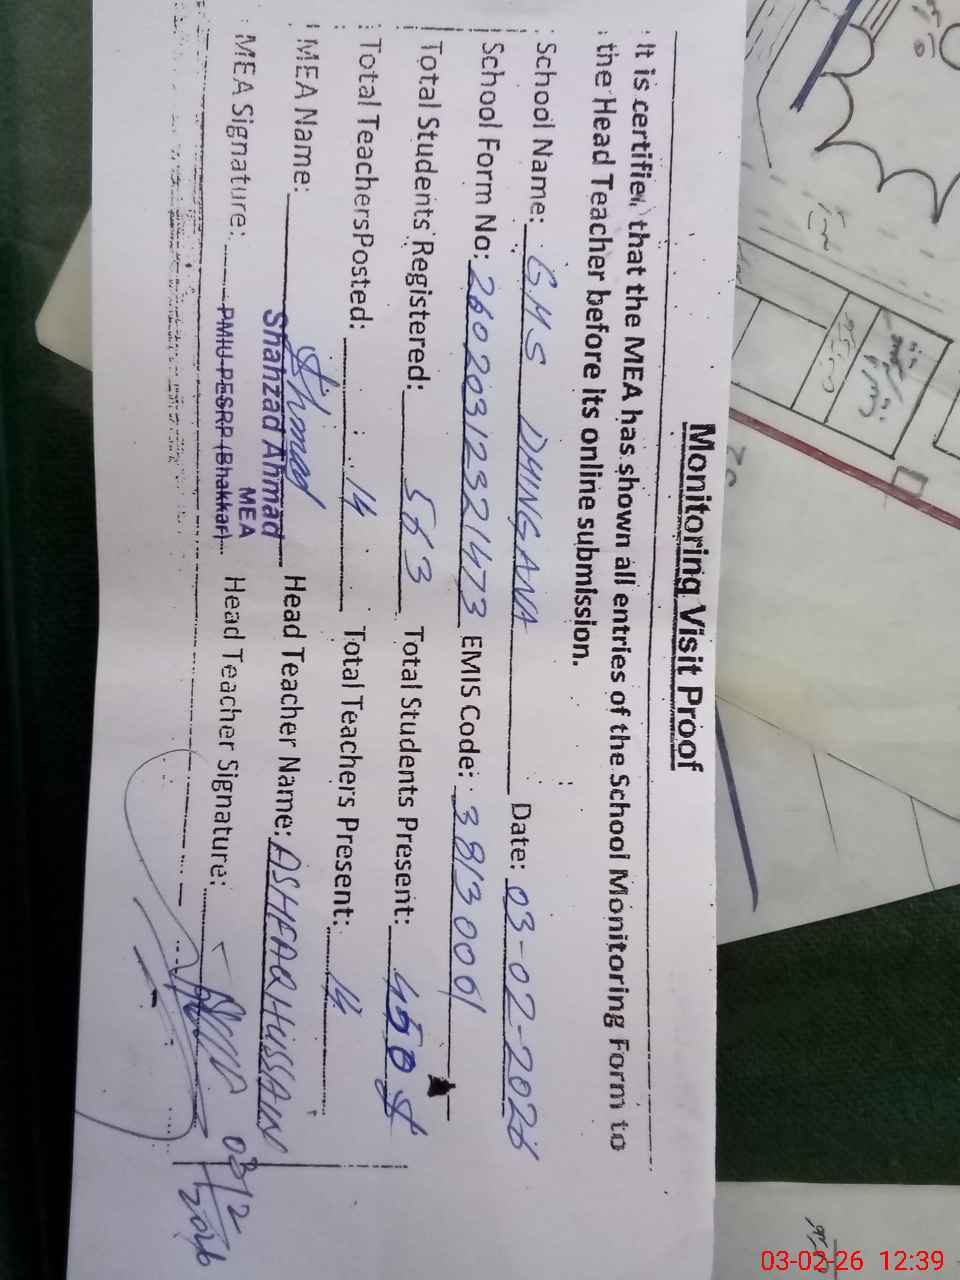 Monitoring Visit Proof
It is certified that the MEA has shown all entries of the School Monitoring Form to
the Head Teacher before its online submission.
School Name: GMS DHINGANA Date: 03-02-2026
School Form No: 26020312321473 EMIS Code: 38130061
Total Students Registered: 563 Total Students Present: 450
Total Teachers Posted: 14 Total Teachers Present: 14
MEA Name: Shahzad Ahmad Head Teacher Name: ASHFAQ HUSSAIN
MEA
MEA Signature: PMIU-PESRP (Bhakkar) Head Teacher Signature:
03/2/2026
03-02-26 12:39